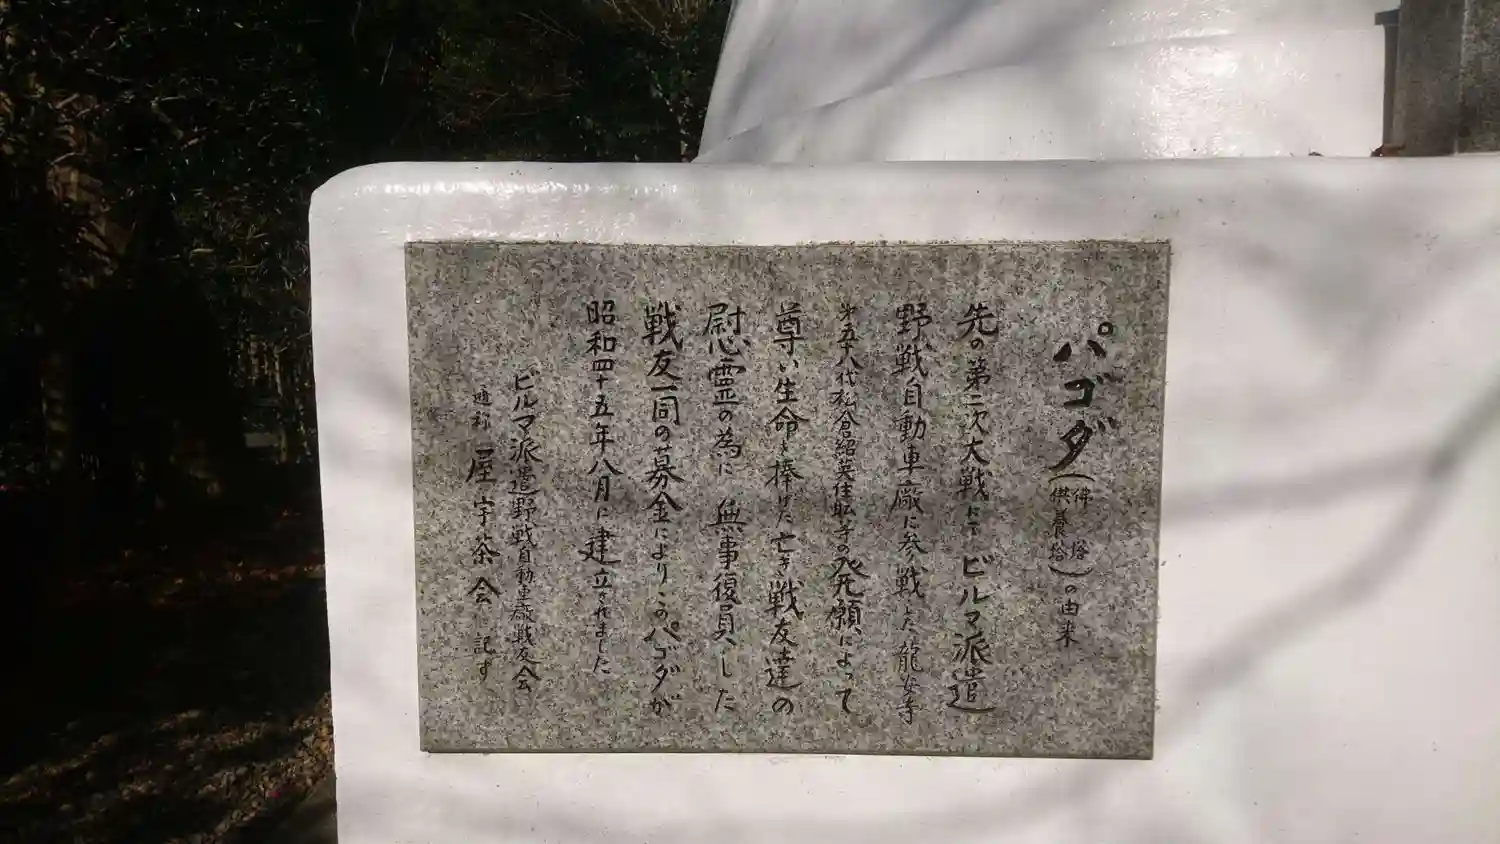 パゴダ(佛塔 供養塔)の由来
先の第二次大戦にてビルマ派遣
野戦自動車廠に参戦した龍安寺
第五十八代松倉紹英住職等の発願によって
尊い生命を捧げた亡き戦友達の
慰霊の為に 無事復員した
戦友一同の募金によりこのパゴダが
昭和四十五年八月に建立されました
ビルマ派遣野戦自動車廠戦友会
通称 宇茶会 記す